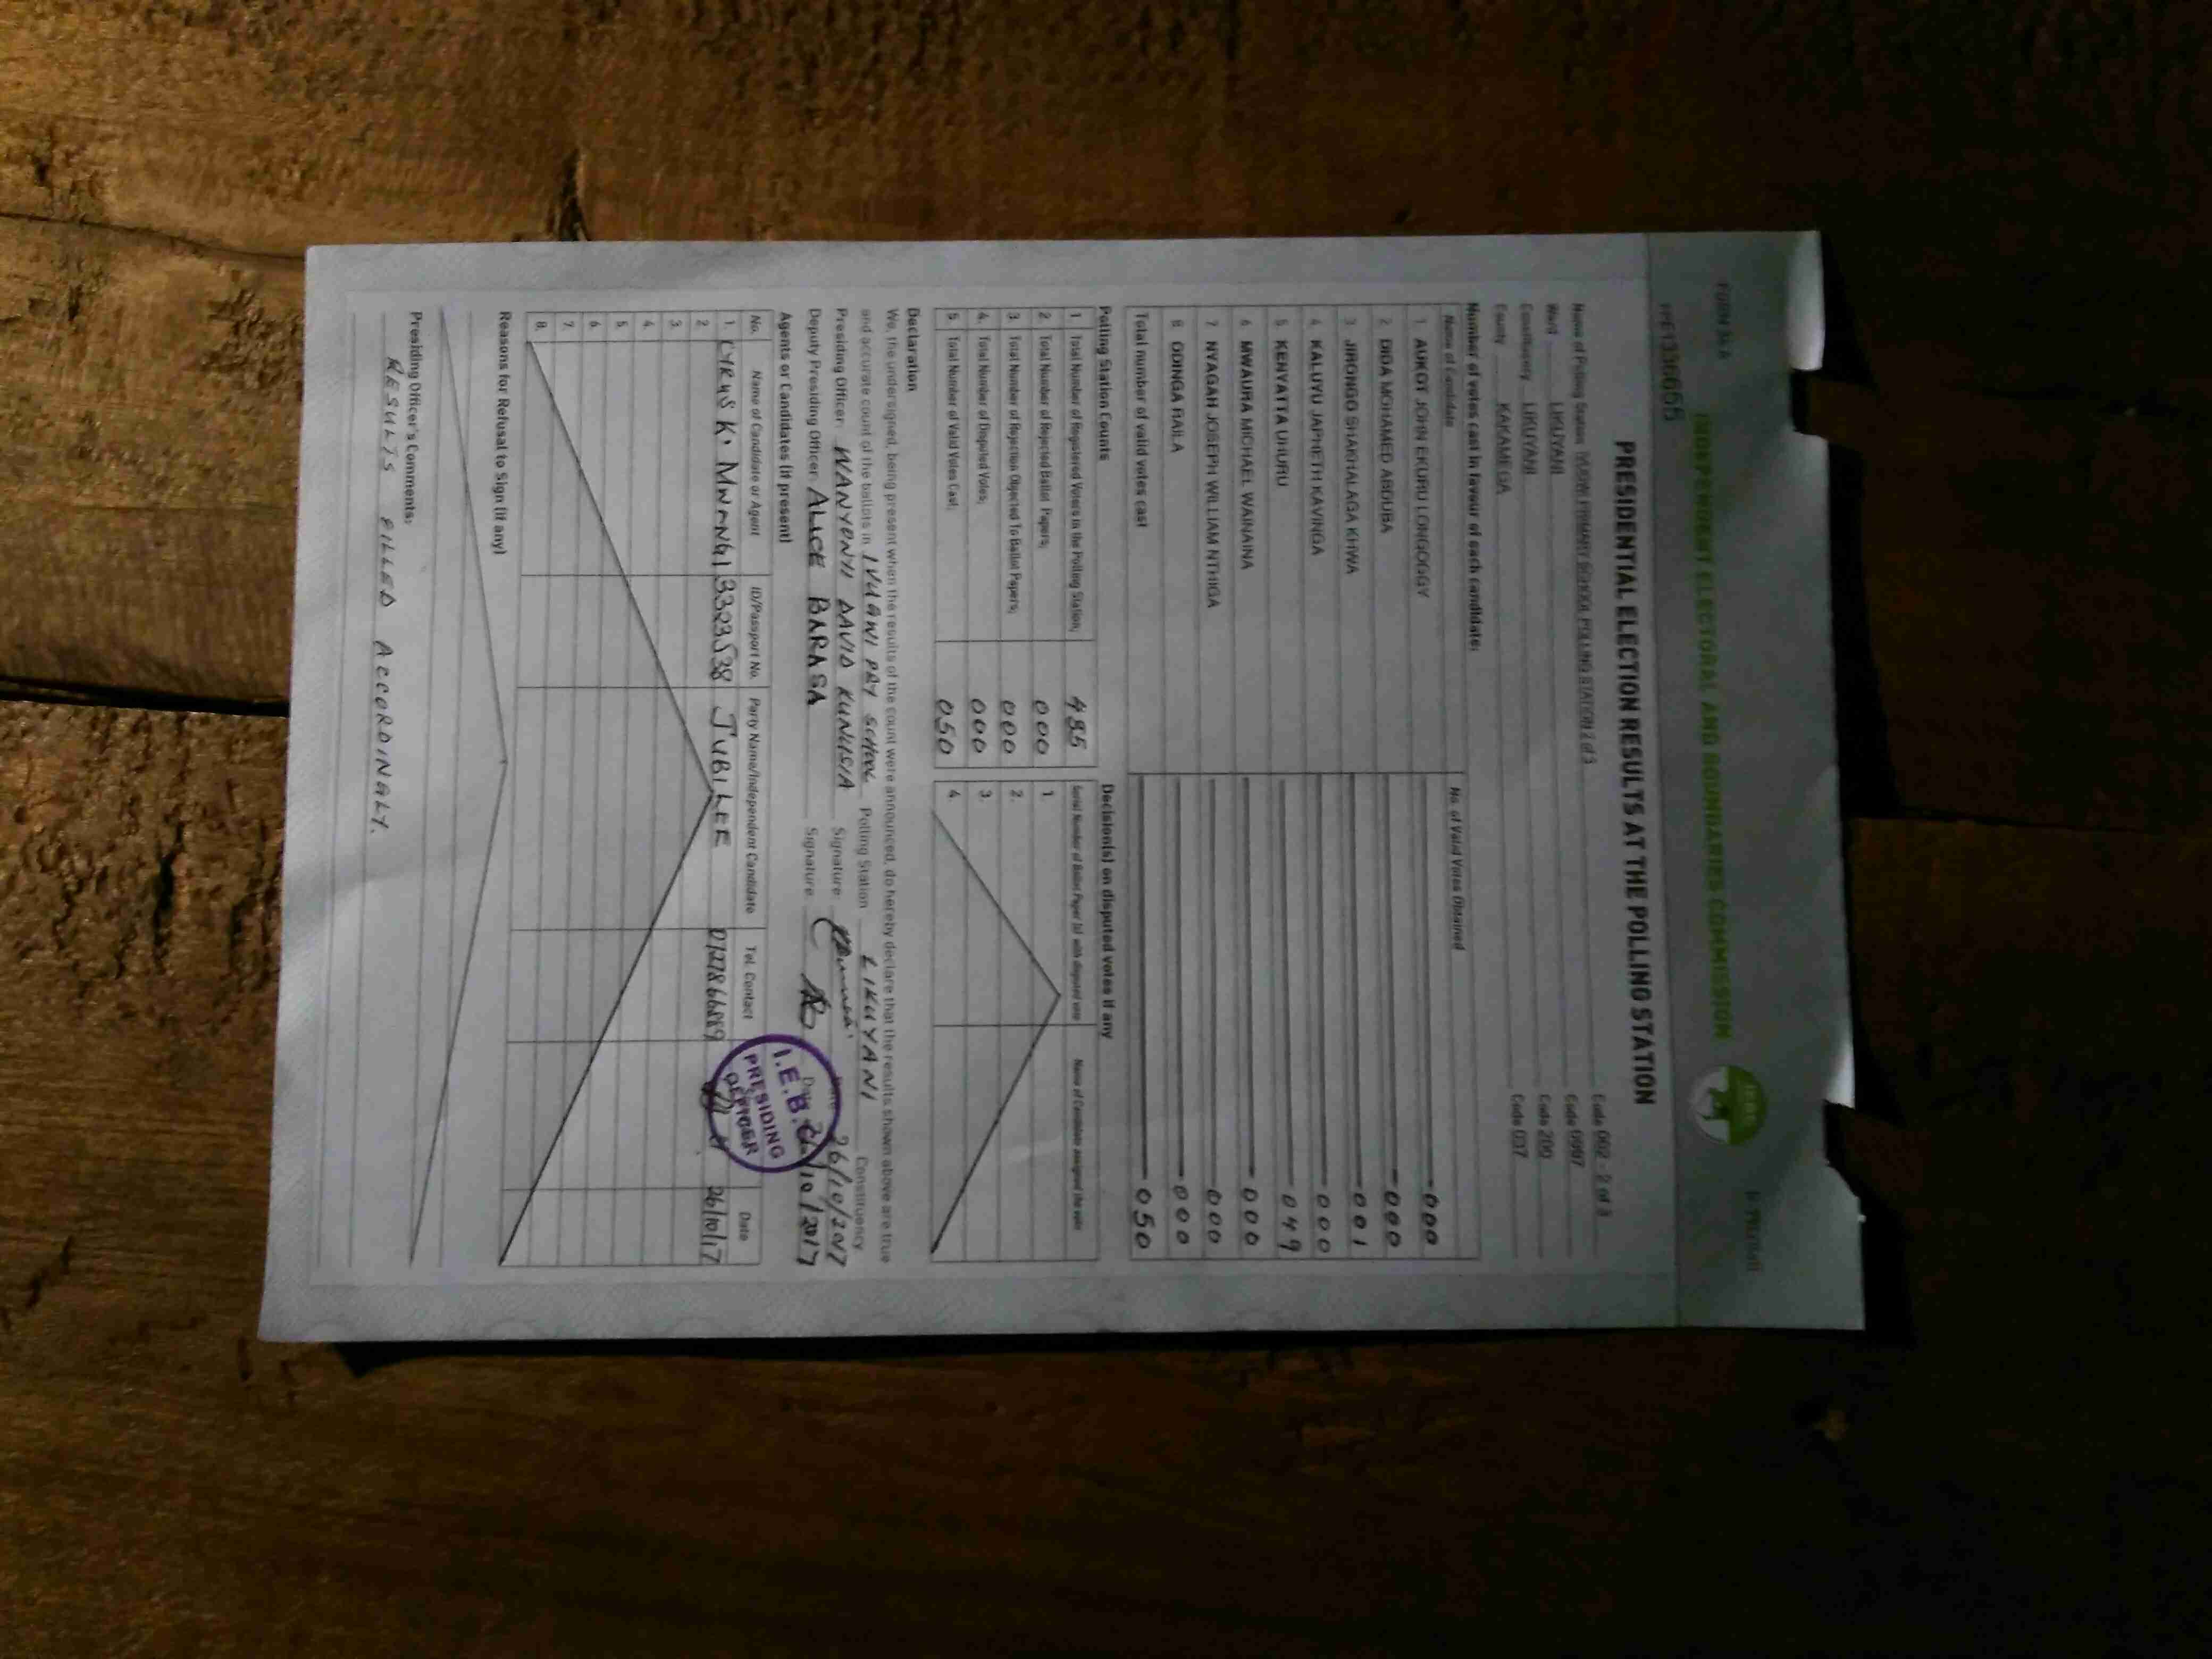 FORM 34 A
INDEPENDENT ELECTORAL AND BOUNDARIES COMMISSION
PRESIDENTIAL ELECTION RESULTS AT THE POLLING STATION
Name of Polling Station PRIMARY SCHOOL POLLING STATION 2 of 3 Code 002 - 2 of 3
Ward LIKUYANI Code 0997
Constituency LIKUYANI Code 200
County KAKAMEGA Code 037
Number of votes cast in favour of each candidate:
Name of Candidate No. of Valid Votes Obtained
1 AUKOT JOHN EKURU LONGOGGY 000
2 DIDA MOHAMED ABDUBA 000
3 JIRONGO SHAKHALAGA KHWA 001
4 KALUYU JAPHETH KAVINGA 000
5 KENYATTA UHURU 049
6 MWAURA MICHAEL WAINAINA 000
7 NYAGAH JOSEPH WILLIAM NTHIGA 000
8 ODINGA RAILA 000
Total number of valid votes cast 050
Polling Station Counts
1 Total Number of Registered Voters in the Polling Station;
2. Total Number of Rejected Ballot Papers; 000
3. Total Number of Rejection Objected To Ballot Papers; 000
4. Total Number of Disputed Votes; 000
5 Total Number of Valid Votes Cast; 050
Decision(s) on disputed votes if any
Serial Number of Ballot Paper (s) with disputed vote Name of Candidate assigned the vote
1.
2.
3.
4.
Declaration
We, the undersigned, being present when the results of the count were announced, do hereby declare that the results shown above are true
and accurate count of the ballots in PRY SCHOOL Polling Station LIKUYANI Constituency
Presiding Officer: WANYONYI DAVID Signature: Date 26/10/2017
Deputy Presiding Officer: ALICE BARASA Signature: Date 26/10/2017
Agents or Candidates (if present)
No. Name of Candidate or Agent ID/Passport No. Party Name/Independent Candidate Tel. Contact Date
1. CYRUS K. MWANGI 33233538 JUBILEE 26/10/17
2
3.
4.
5.
6.
7.
8.
I.E.B.C
PRESIDING
OFFICER
Reasons for Refusal to Sign (if any)
Presiding Officer's Comments:
RESULTS FILLED ACCORDINGLY.